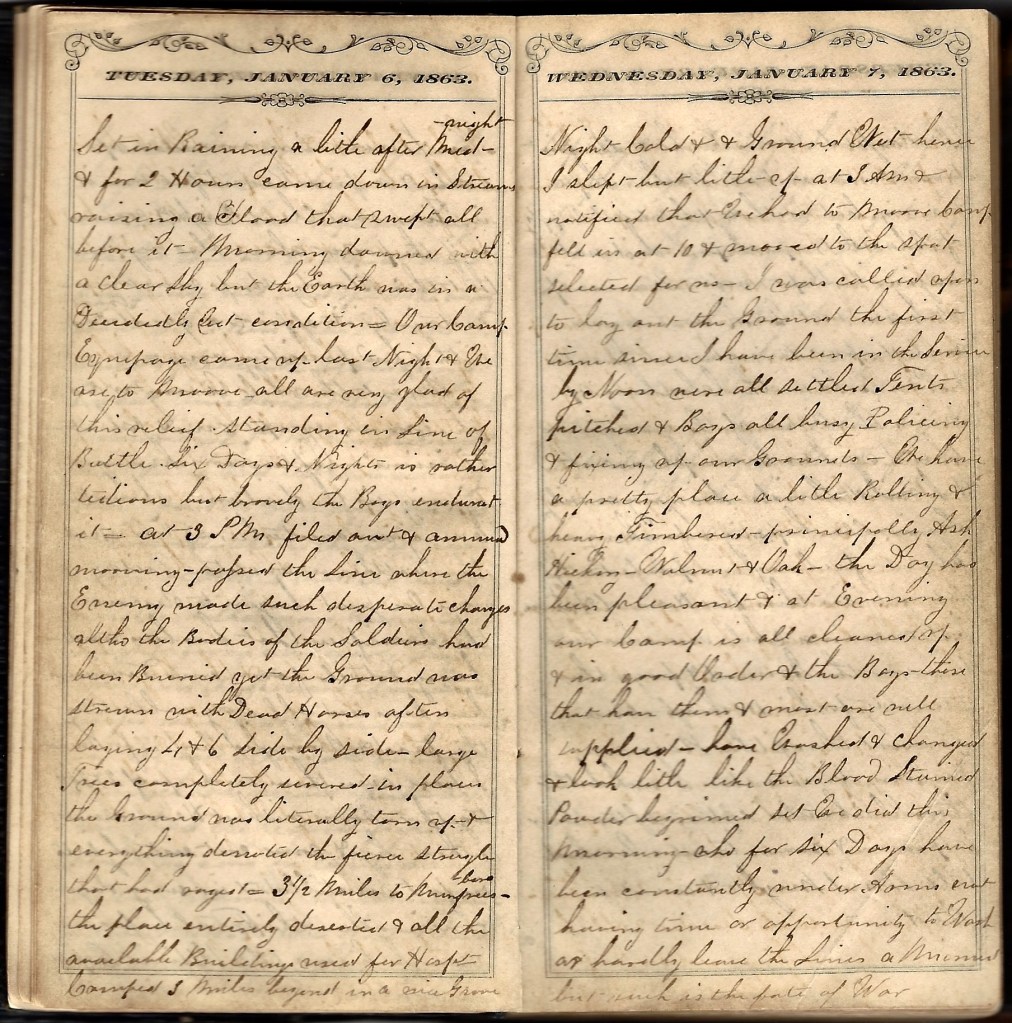 TUESDAY, JANUARY 6, 1863.
Set in Raining a litle after Mid-night
& for 2 Hours came down in Streams
raising a Flood that swept all
before it – Morning dawned with
a clear sky but the Earth was in a
Decidedly Wet condition = Our Camp
Equipage came up last Night & We
are to Moove all are very glad of
this relief. Standing in Line of
Battle Six Days & Nights is rather
tedious but bravely the Boys endured
it = at 3 P Ms filed out &
mooving – passed the Line where the
Enemy made such desperate charges
altho the Bodies of the Soldiers had
been Burried yet the Ground was
strewn with Dead Horses often
laying 4 & 6 side by side – large
Trees completely severed – in places
the Ground was literally torn up &
everything denoted the fierce struggle
that had raged = 3 1/2 Miles to Murfreesboro –
the place entirely deserted & all the
available Buildings used for Hospt
Camped 3 Miles beyond in a nice Grove
WEDNESDAY, JANUARY 7, 1863.
Night Cold & & Ground Wet hence
I slept but litle up at 3 Am &
notified that We had to Moove Camp
fell in at 10 & mooved to the spot
selected for us – I was called upon
to lay out the Ground the first
time since I have been in the Service
by Noon were all settled Tents
pitched & Boys all busy Policing
& fixing up our Grounds – We have
a pretty place a litle Rolling &
heavy Timbered – principally Ash
Hickory – Walnut & Oak – the Day has
been pleasant & at Evening
our Camp is all cleaned up
& in good Order & the Boys – those
that have them & most are well
supplied – have Washed & changed
& look litle like the Blood Stained
Powder begrimed set We did this
Morning – who for six Days have
been constantly under Arms not
having time or opportunity to Wash
or hardly leave the Lines a Moment
but such is the fate of War